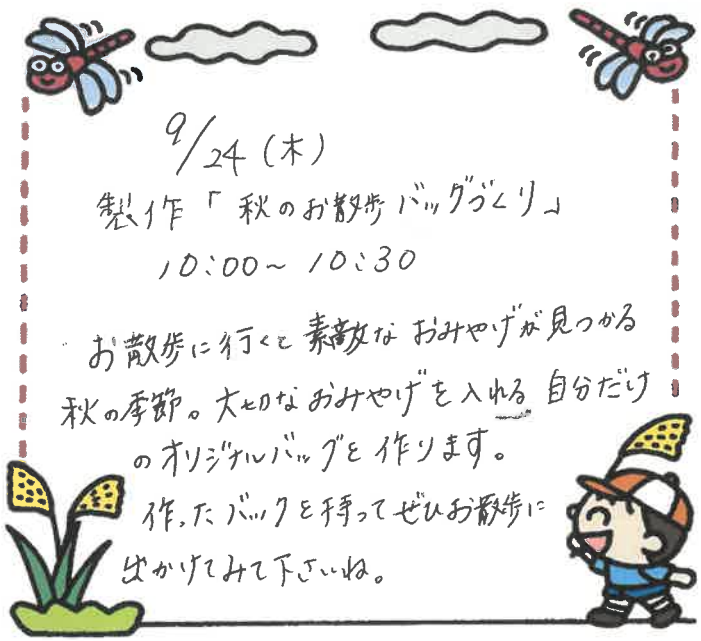 9/24（木）
製作「秋のお散歩バッグづくり」
10:00〜10:30
お散歩に行くと素敵なおみやげが見つかる
秋の季節。大切なおみやげを入れる自分だけ
のオリジナルバッグを作ります。
作ったバックを持ってぜひお散歩に
出かけてみて下さいね。